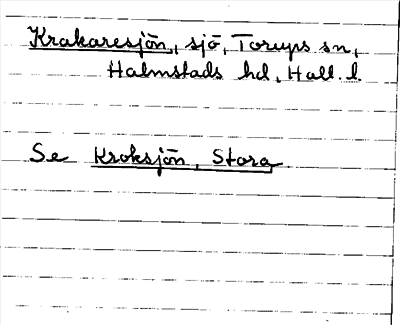 Krakaresjön, sjö, Torups sn,
Halmstads hd, Hall. l.
Se Kroksjön, Stora